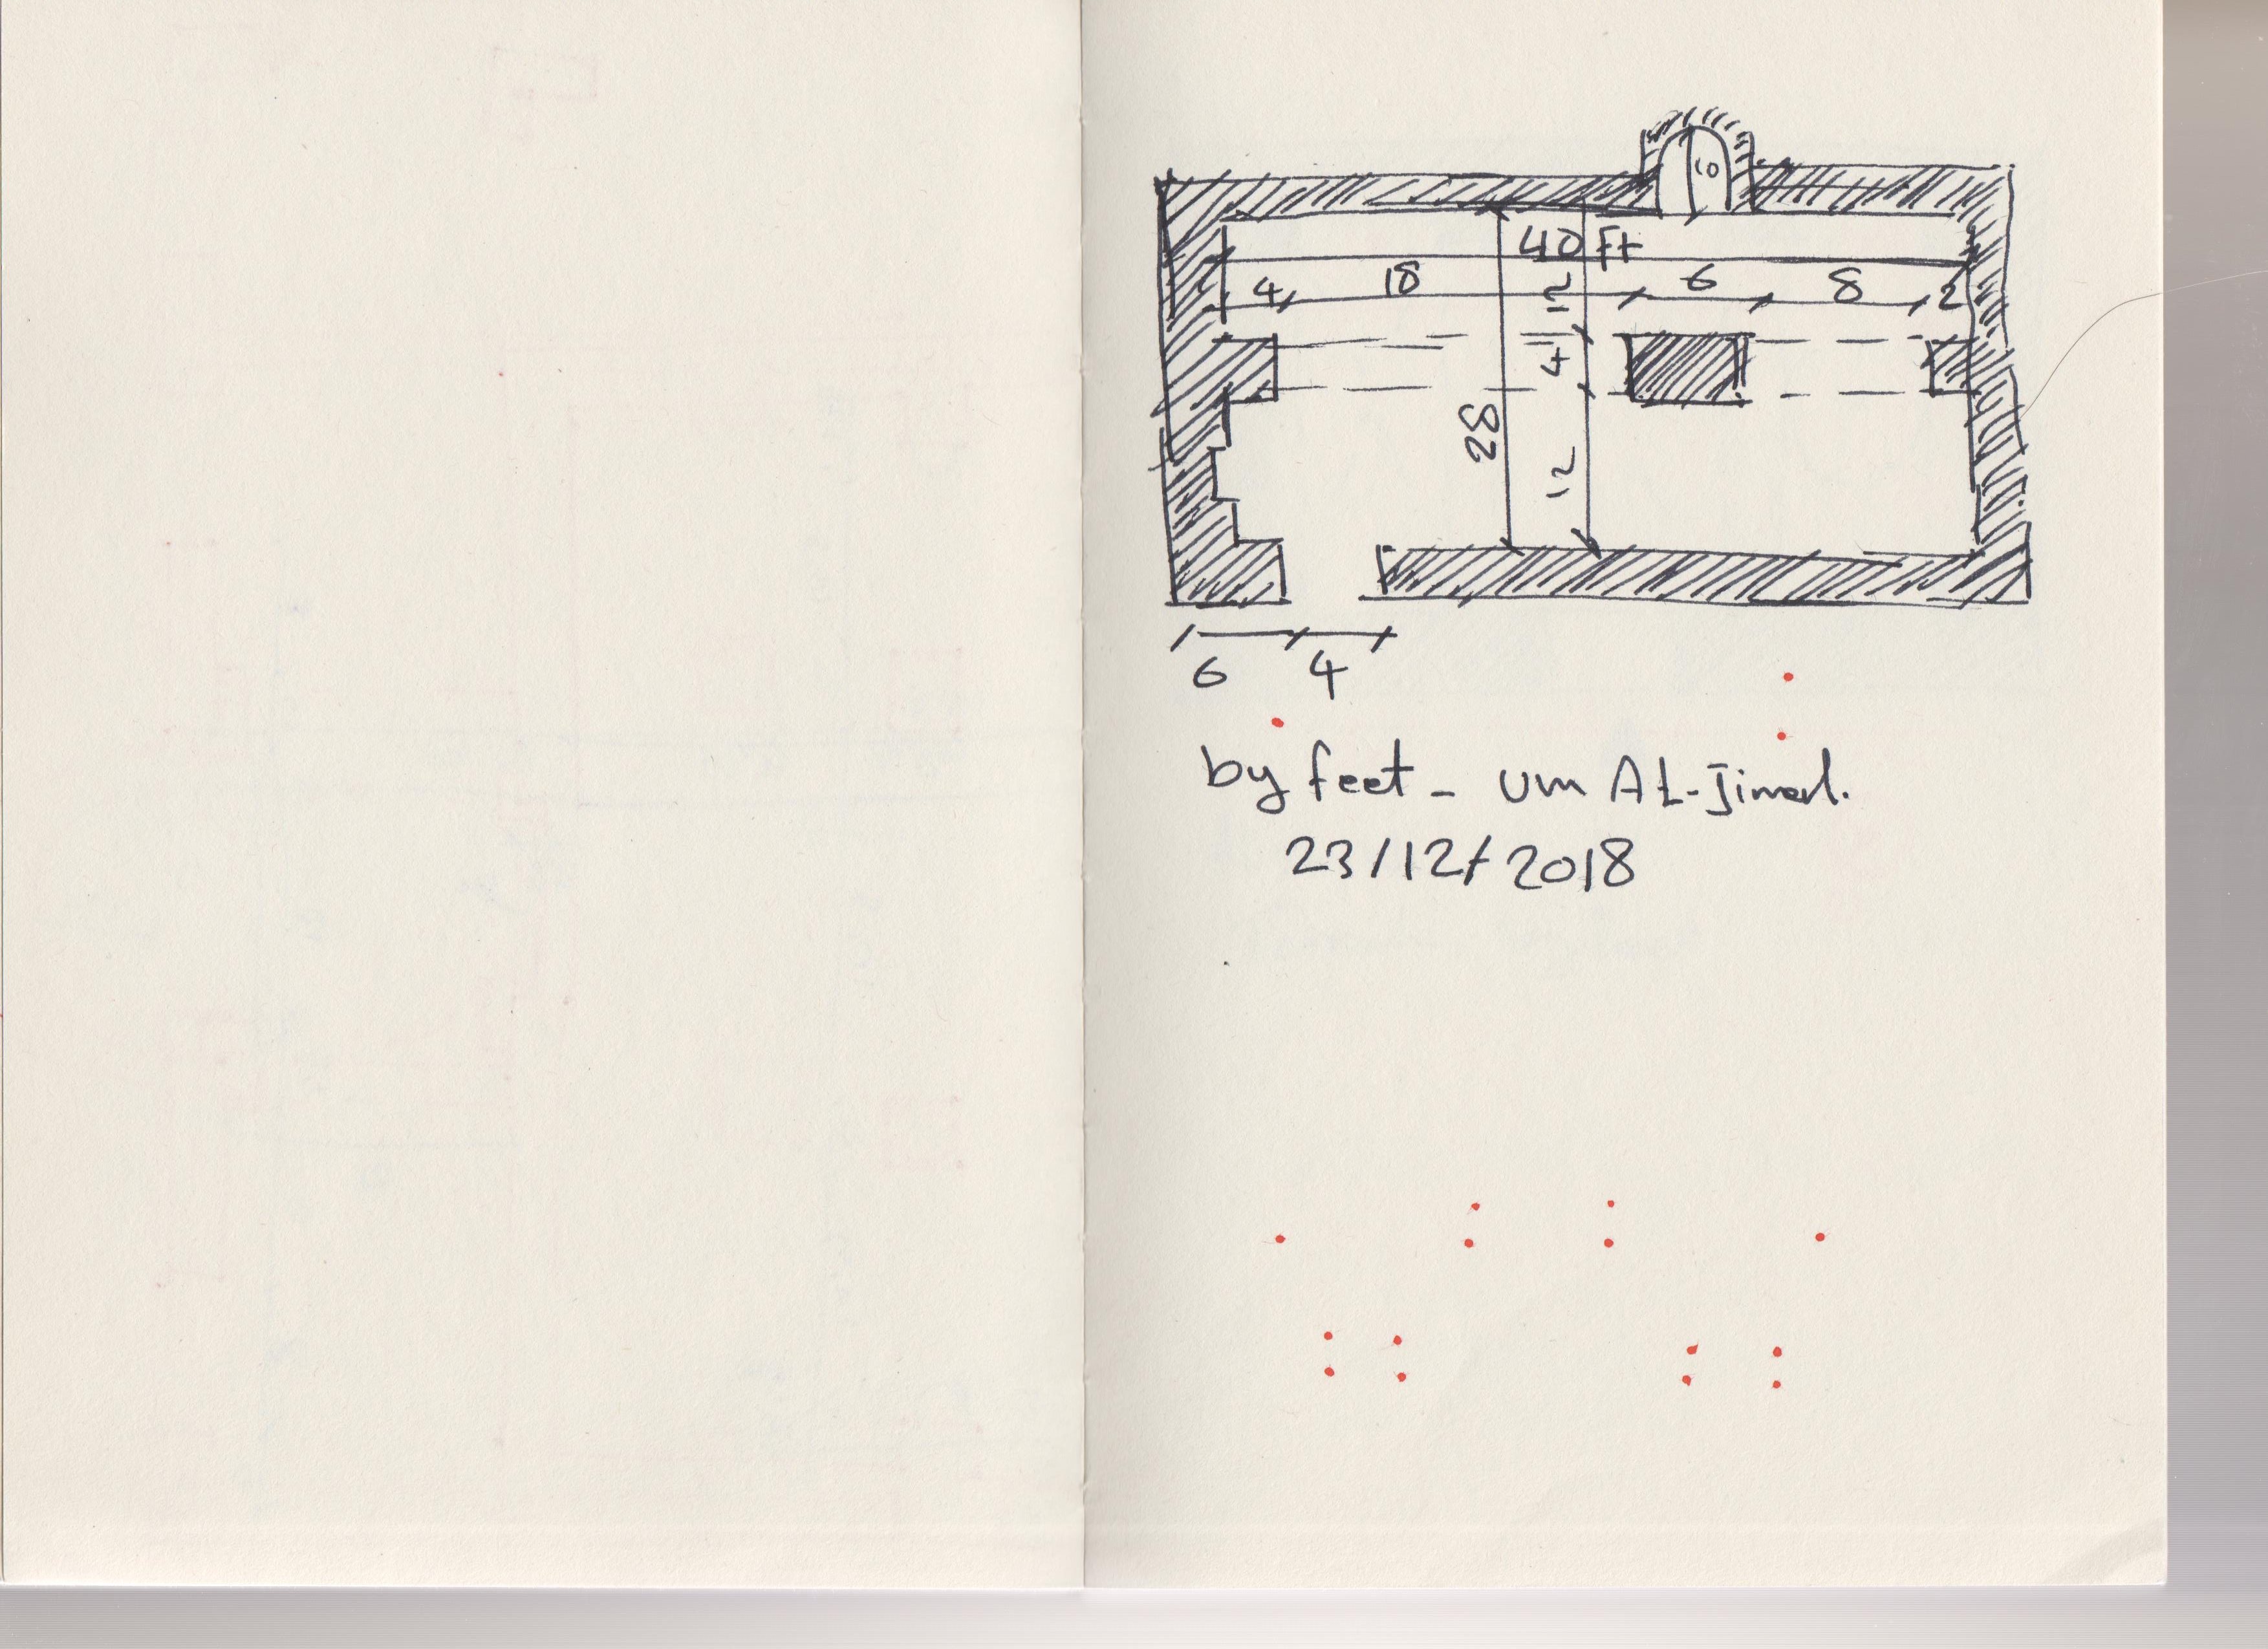 10
40 Ft
4 18 12 6 8 2
4
28
12
6 4
by feet - um AL-Jimal.
23/12/2018